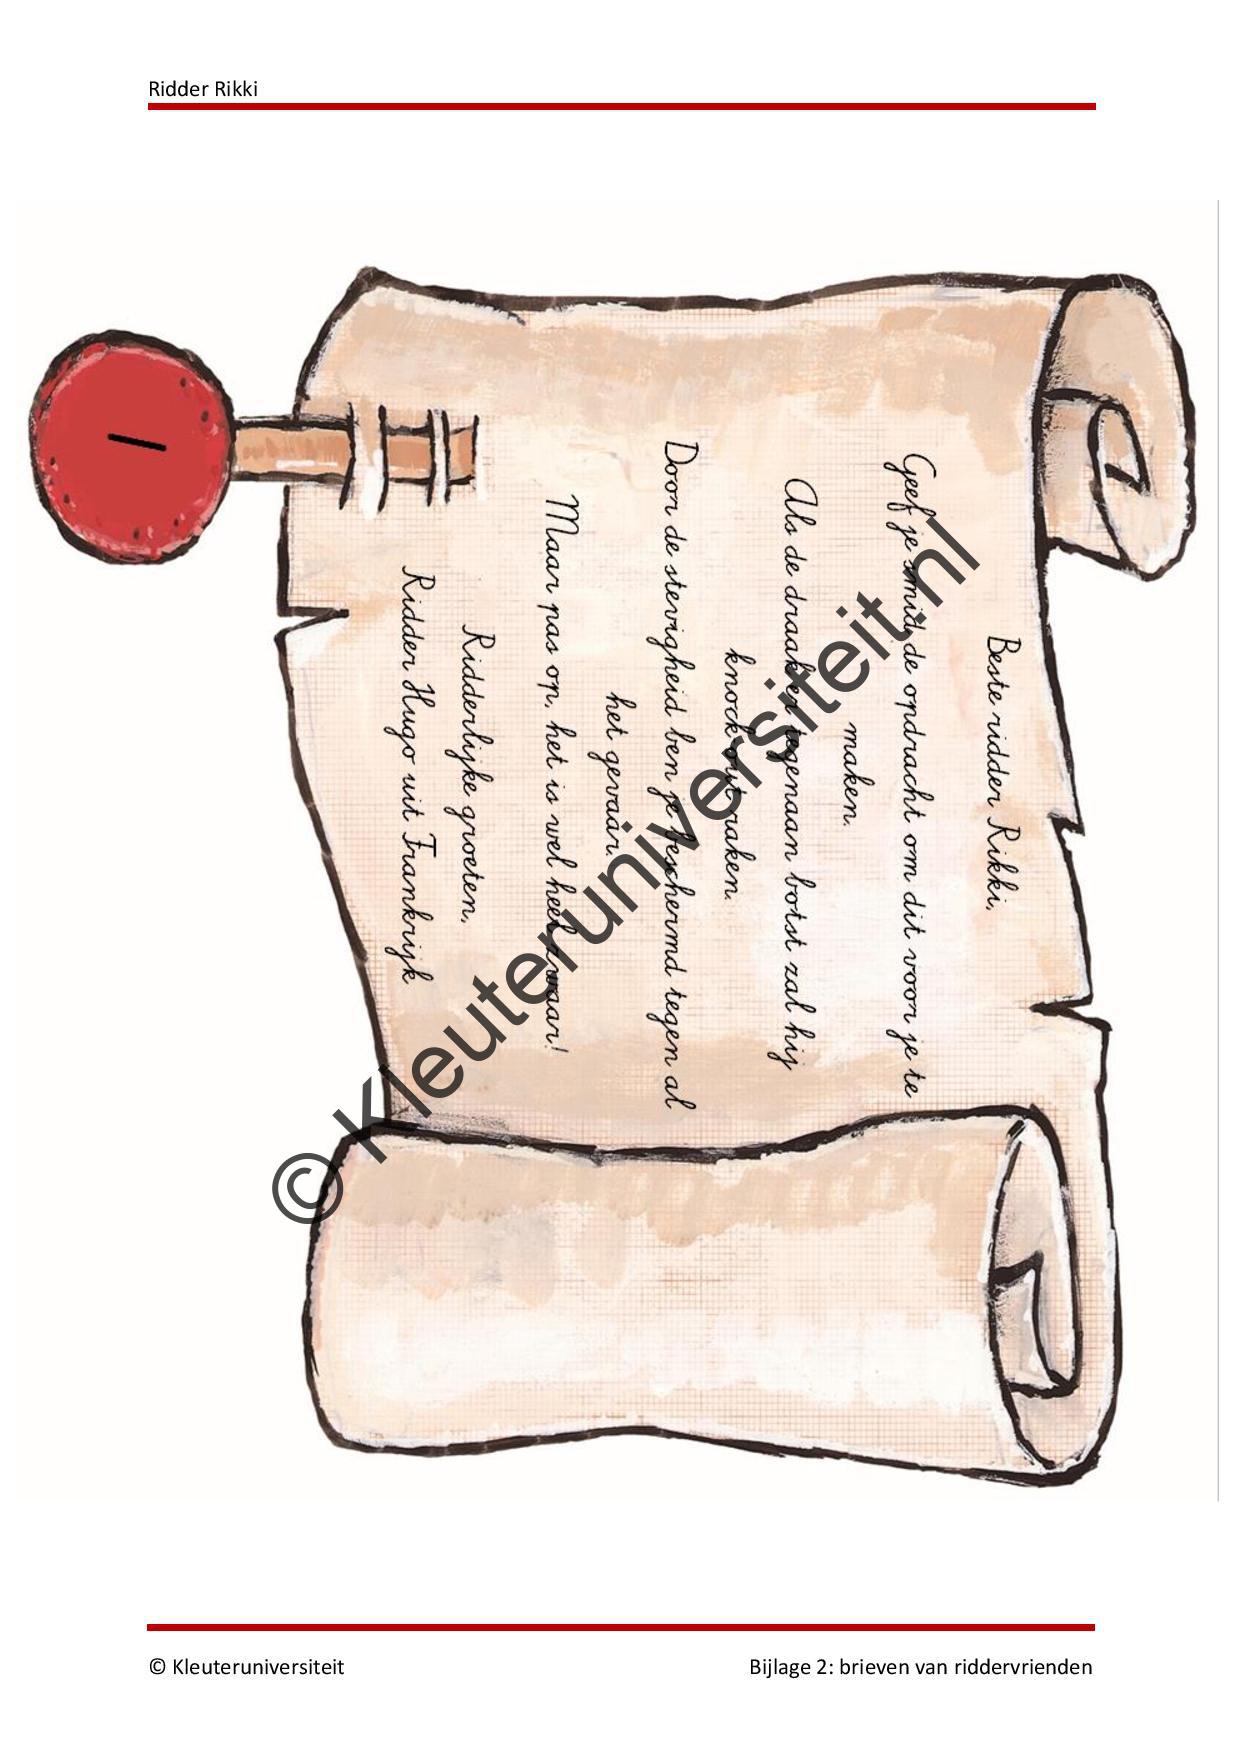 Ridder Rikki
Beste ridder Rikki,
Geef je smid de opdracht om dit voor je te
maken.
Als de draak er tegenaan botst zal hij
knock out raken.
Door de stevigheid ben je beschermd tegen al
het gevaar.
Maar pas op, het is wel heel zwaar!
Ridderlijke groeten,
Ridder Hugo uit Frankrijk
© Kleuteruniversiteit.nl
© Kleuteruniversiteit
Bijlage 2: brieven van riddervrienden